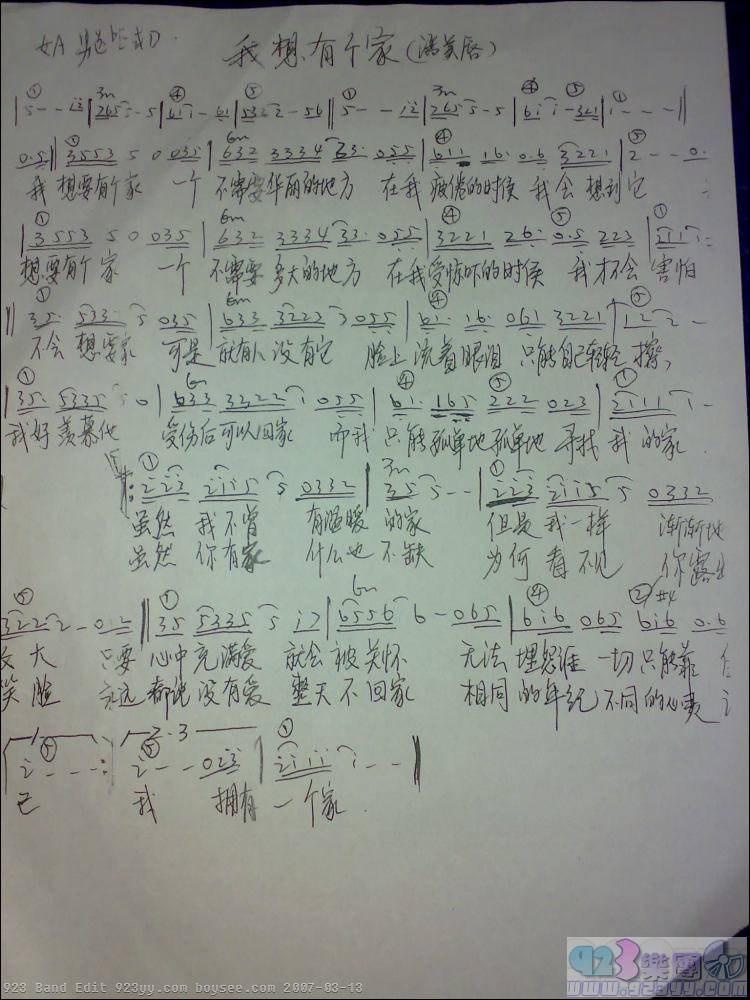 女A 男
我想有个家(潘美辰)
5 - - i2 | 2655 - 5 | 6ii - 6i | 5322 - 56 || 5 - - i2 | 2655 - 5 | 6ii - 321 | i - - - ||
0.5 | 3553 5 0 035 | 632 3334 33. 055 | 611 16. 0.6 3221 | 2 - - 0.
我 想要有个家 一个 不需要华丽的地方 在我疲倦的时候 我会 想到它
3553 5 0 035 | 632 3334 33. 055 | 3221 26. 0.5 223
想要有个家 一个 不需要多大的地方 在我受惊吓的时候 我才不会 害怕
35. 533. 5 035 | 633 3223 3 055 | 61. 16. 061 3221 | 122 -
不会 想要家 可是 就有人没有它 脸上流着眼泪 只能自己轻轻擦,
35. 5335 5 0 | 633 3322 1 055 | 61. 165 222 023 | 2111 1 -
我好羡慕他 受伤后可以回家 而我 只能孤单地孤单地 寻找我的家
223 2115 5 0332 | 35 5 - - | 223 2115 5 0332
虽然 我不曾 有温暖 的家 但是 我一样 渐渐地
虽然 你有家 什么也不缺 为何 看不见 你露出
3222 2 - 012 || 35 5335 5 i7 | 6556 6 - 065 | 6i6 065 6i6 0.6
大 只要 心中充满爱 就会被关怀 无法埋怨谁 一切只能靠
笑脸 永远都说没有爱 整天不回家 相同的年纪 不同的心
1 2.3
i - - - :| i - - 023 | 2iiii i - - ||
己 我 拥有 一个家
923 Band Edit 923yy.com boysee.com 2007-03-13
923樂團
www.923yy.com